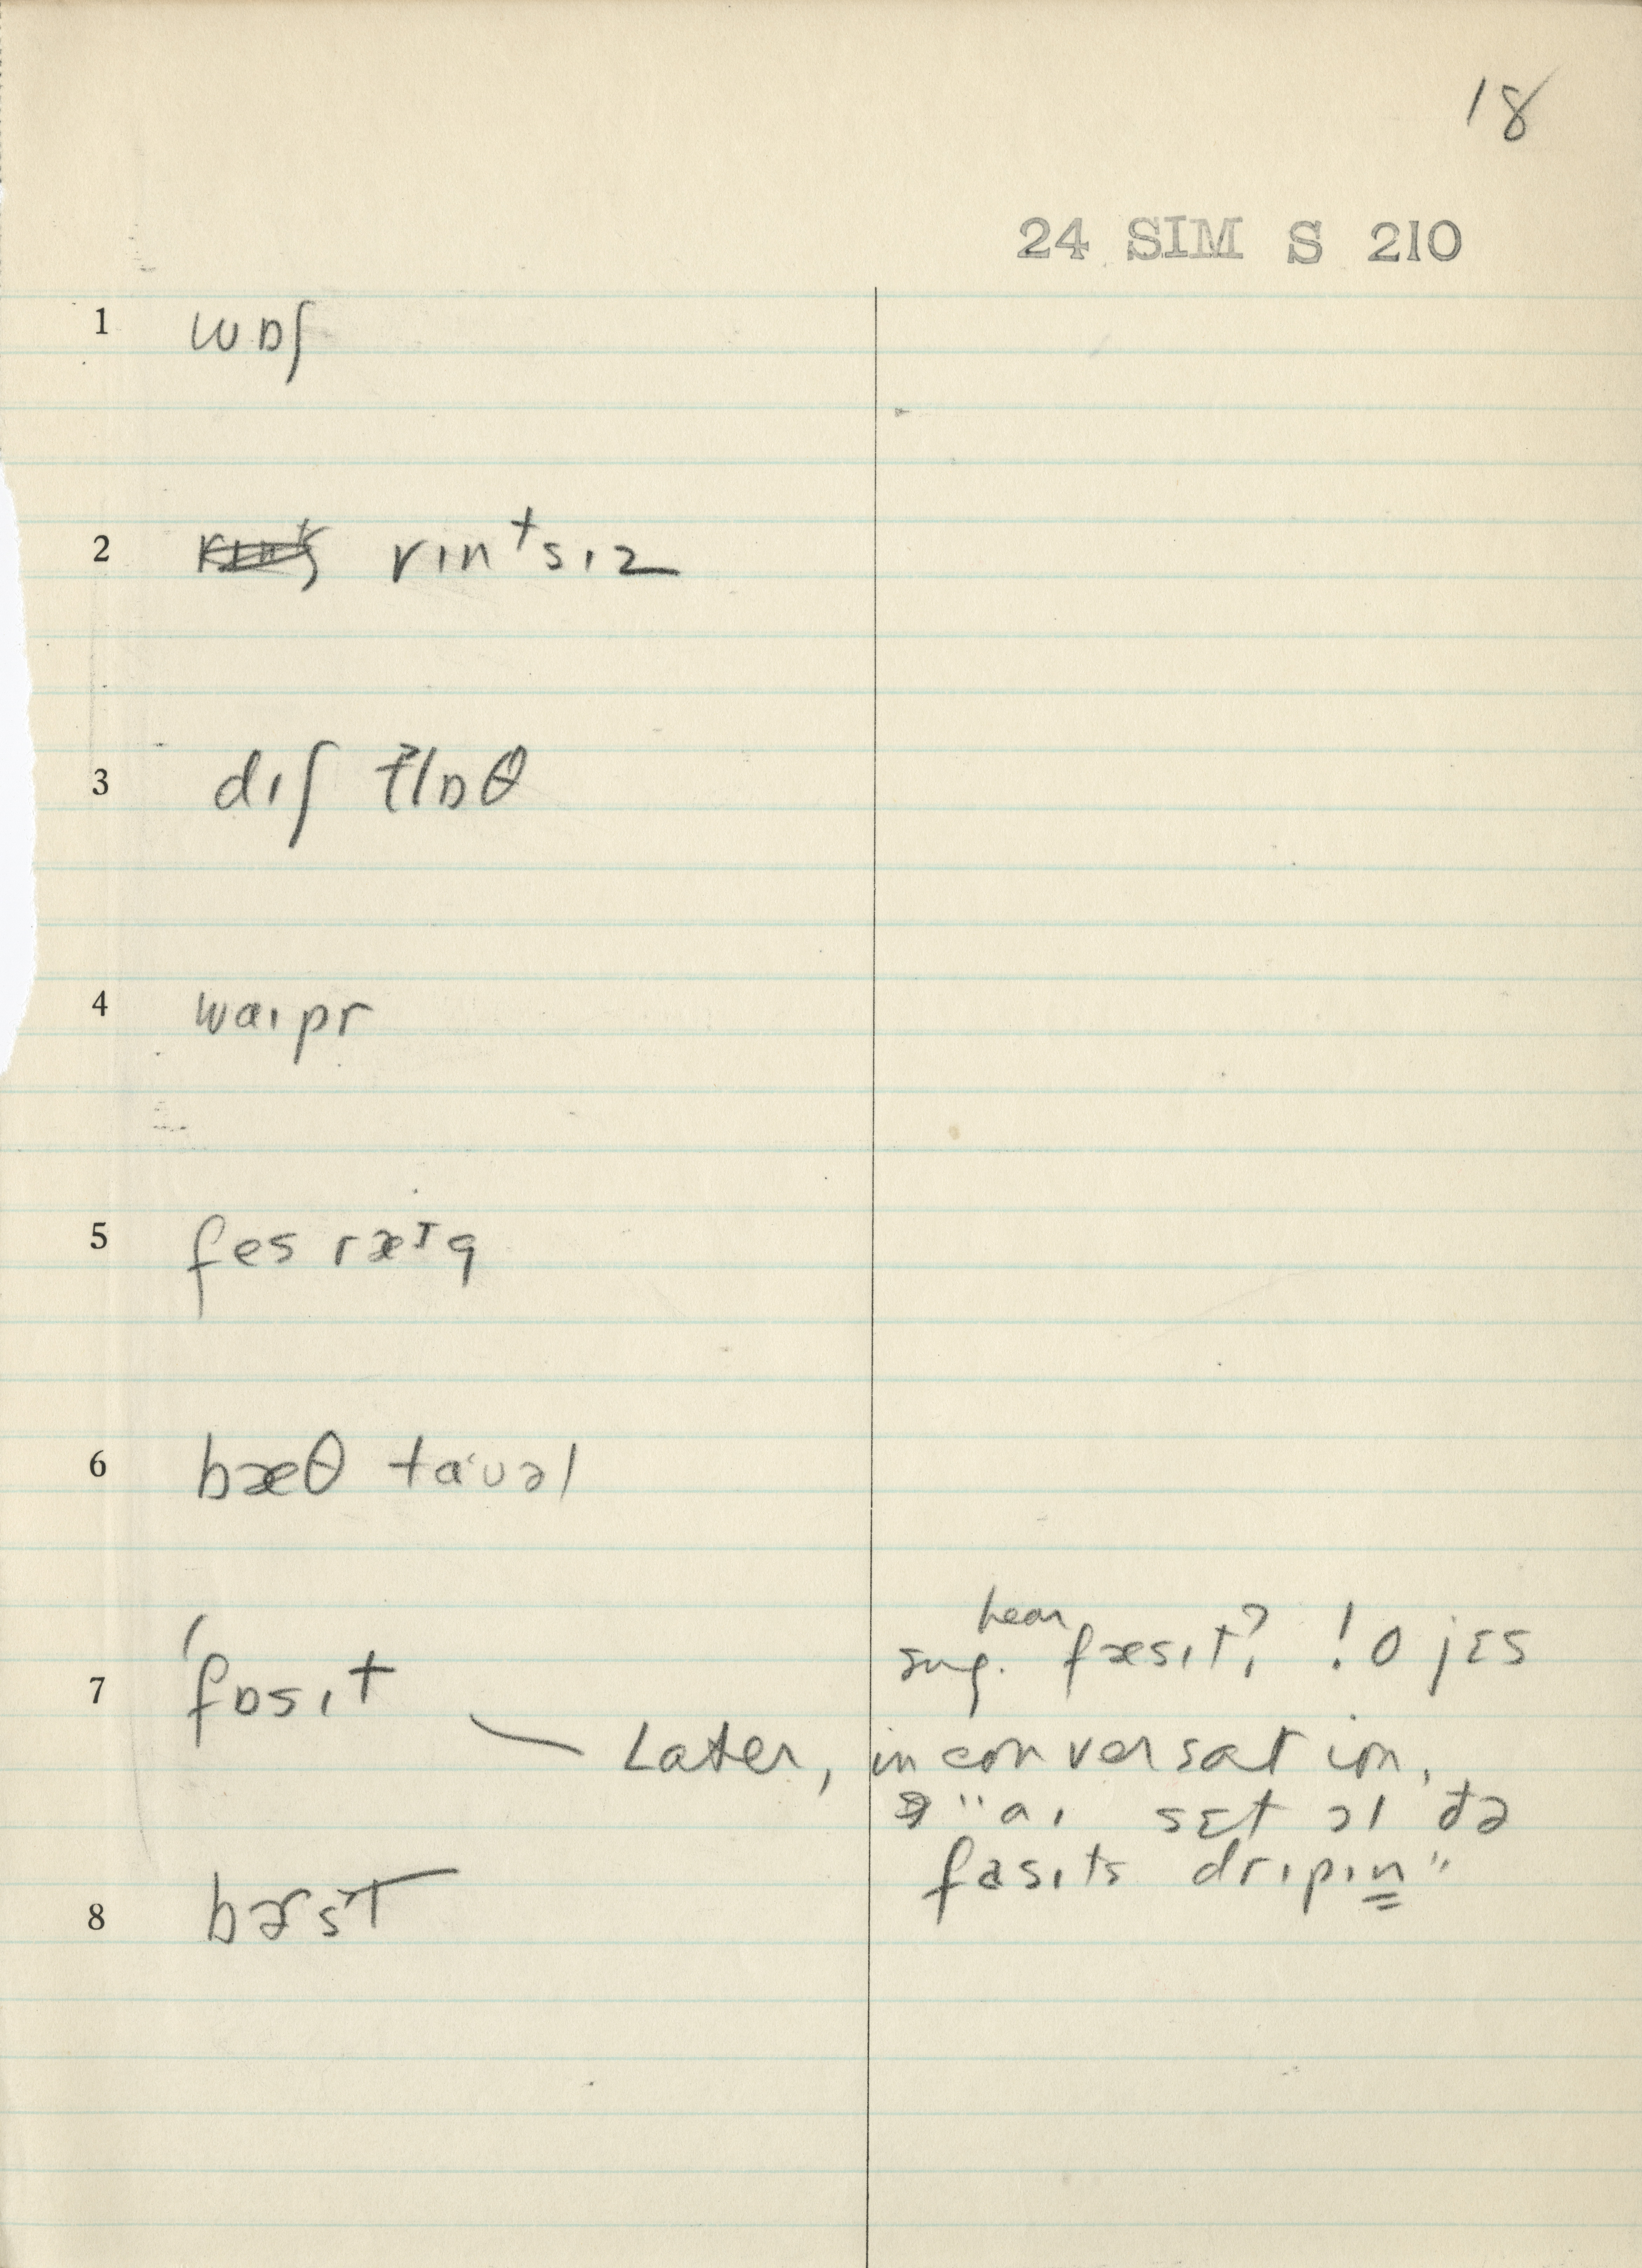 18
24 SIM S 210
1 wɒʃ
2 rɪnᵗsɪz
3 dɪʃ klɒθ
4 waɪpr
5 fes ræᶦg
6 bæθ taˑʊəl
7 ˈfɒsɪt
sug. hear fæsɪt? ! o jɛs
Later, in conversation,
"aɪ sɛt ɔl ðə
fasɪts drɪpɪn"
8 bɚst